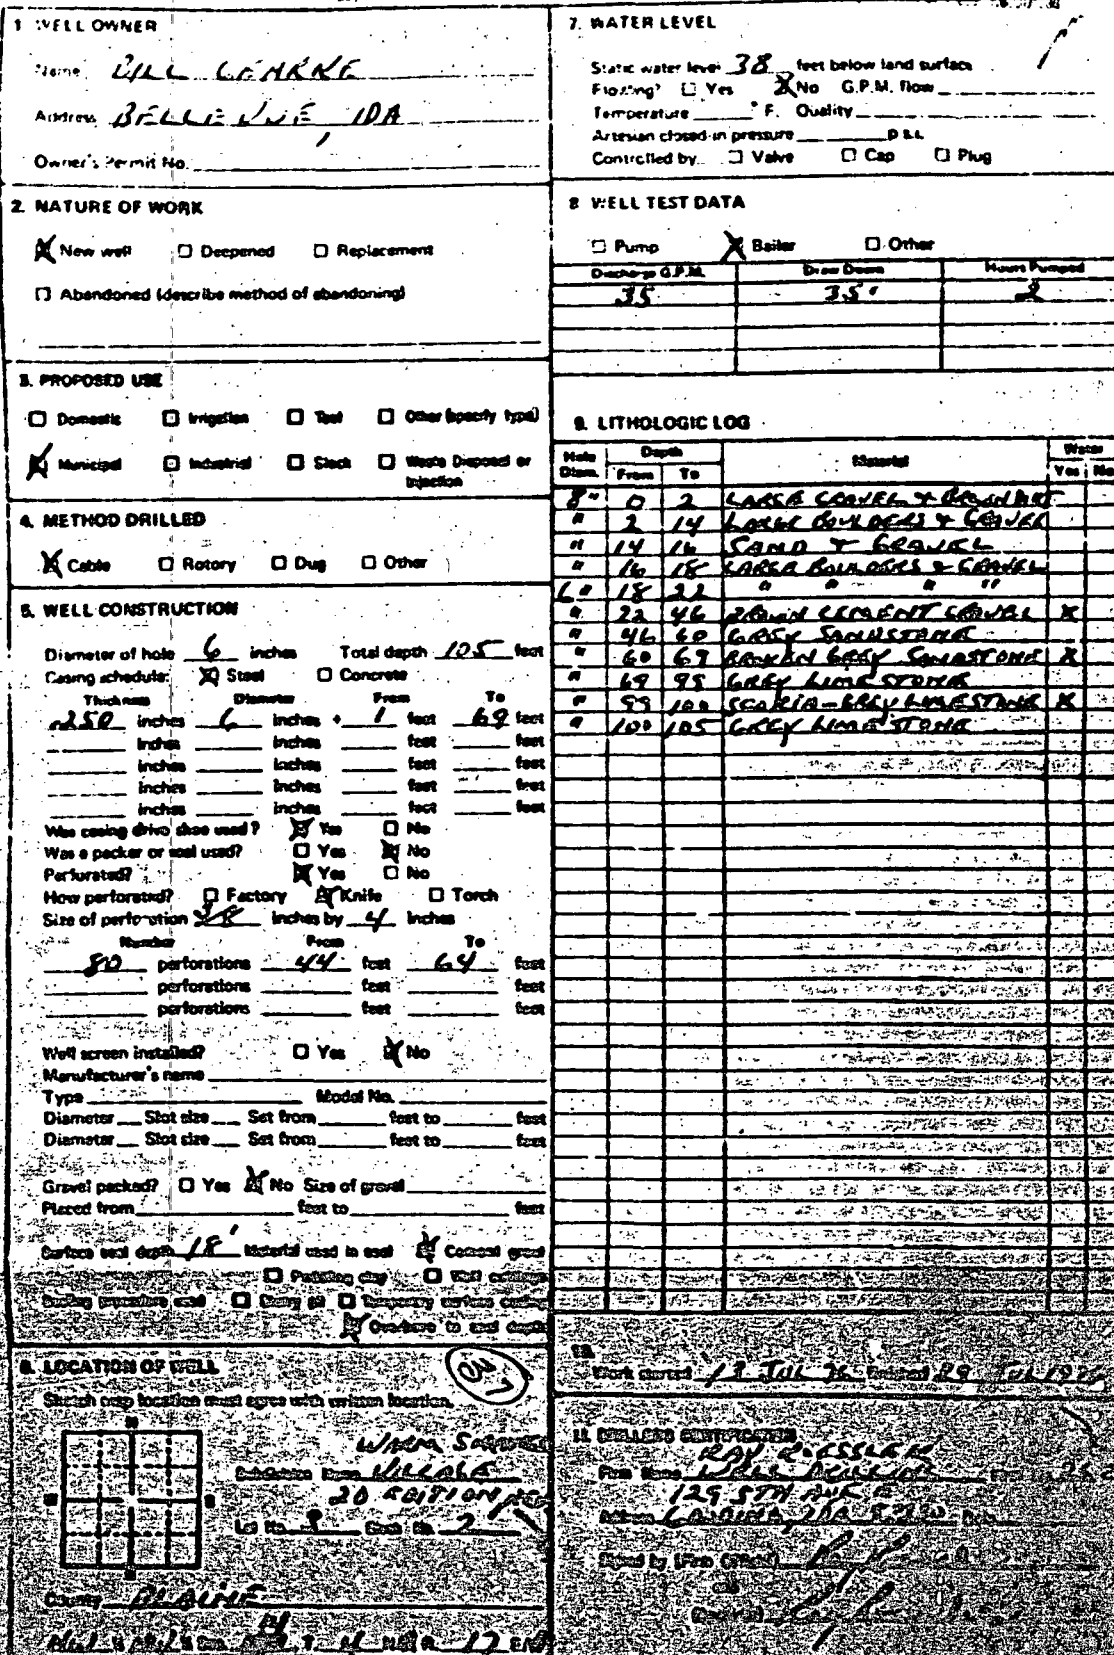 1 WELL OWNER
Name BILL
Address BELLEVUE, IDA
Owner's Permit No.
2. NATURE OF WORK
New well Deepened Replacement
Abandoned (describe method of abandoning)
3. PROPOSED USE
Domestic Irrigation Test Other (specify type)
Municipal Industrial Stock Waste Disposal or Injection
4. METHOD DRILLED
Cable Rotory Dug Other
5. WELL CONSTRUCTION
Diameter of hole 6 inches Total depth 105 feet
Casing schedule: Steel Concrete
Thickness Diameter From To
.250 inches 6 inches + 1 feet 69 feet
inches inches feet feet
inches inches feet feet
inches inches feet feet
inches inches feet feet
Was casing drive shoe used? Yes No
Was a packer or seal used? Yes No
Perforated? Yes No
How perforated? Factory Knife Torch
Size of perforation inches by 4 inches
Number From To
80 perforations 44 feet 64 feet
perforations feet feet
perforations feet feet
Well screen installed? Yes No
Manufacturer's name
Type Model No.
Diameter Slot size Set from feet to feet
Diameter Slot size Set from feet to feet
Gravel packed? Yes No Size of gravel
Placed from feet to feet
Surface seal depth 18' Material used in seal Cement grout
Puddling clay Well cuttings
Sealing procedure used Slurry pit Temporary surface casing
Overbore to seal depth
6. LOCATION OF WELL
Sketch map location must agree with written location.
N
W E
S
WARM SPRINGS
Subdivision Name VILLAGE
Lot No. Block No. 2
County BLAINE
7. WATER LEVEL
Static water level 38 feet below land surface
Flowing? Yes No G.P.M. flow
Temperature °F. Quality
Artesian closed-in pressure p.s.i.
Controlled by Valve Cap Plug
8 WELL TEST DATA
Pump Bailer Other
Discharge G.P.M. Draw Down Hours Pumped
35 35' 2
9. LITHOLOGIC LOG
Hole Diam. Depth Material Water
From To Yes No
8" 0 2 LARGE GRAVEL &
" 2 14 LARGE BOULDERS & GRAVEL
" 14 16 SAND & GRAVEL
" 16 18 LARGE BOULDERS & GRAVEL
6" 18 22 " " " "
" 22 46 BROWN CEMENT GRAVEL X
" 46 60 GREY SANDSTONE
" 60 69 BROKEN GREY SANDSTONE X
" 69 GREY LIMESTONE
" 99 100 SCORIA-GREY LIMESTONE X
" 100 105 GREY LIMESTONE
10.
Work started 13 JUL 76 finished 29 JUL 197
11. DRILLERS CERTIFICATION
RAY
Firm Name WELL DRILLING
129 5TH AVE E
Address
Signed by (Firm Official)
and
(Operator)